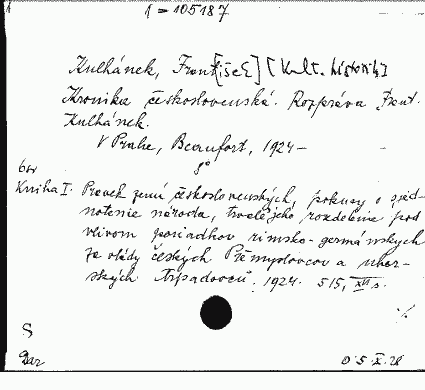 1 = 105187
Kulhánek, Frant[išek] [Kult. historik]
Kronika československá. Rozpráva Frant.
Kulhánek.
V Prahe, Beaufort, 1924-
8°
6sv
Kniha I. Pravek zemí československých, pokusy o sjed-
notenie národa, trvalé jeho rozdelenie pod
vlivom poriadkov rimsko-germánskych
za vlády českých Přemyslovcov a uhor-
ských Arpádovců. 1924. 515, XVI s.
·/.
S
Dar
05.X.28